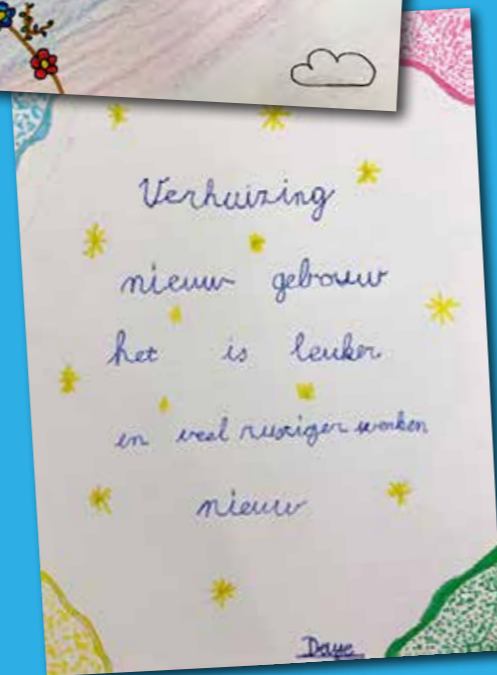 Verhuizing
nieuw gebouw
het is leuker
en veel rustiger werken
nieuw